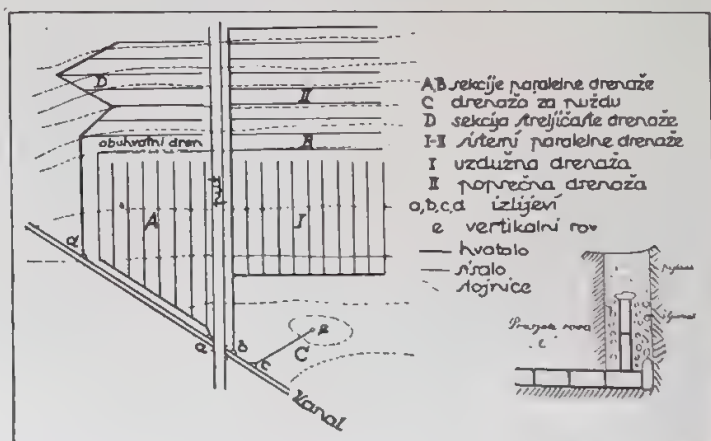 D
II
B
obuhvatni dren
put
A
I
d
a
b
c
e
C
Kanal
A,B sekcije paralelne drenaže
C drenaža za nuždu
D sekcija streljičaste drenaže
I-II sistemi paralelne drenaže
I uzdužna drenaža
II poprečna drenaža
a,b,c,d izlijevi
e vertikalni rov
hvatalo
sisalo
slojnice
rova